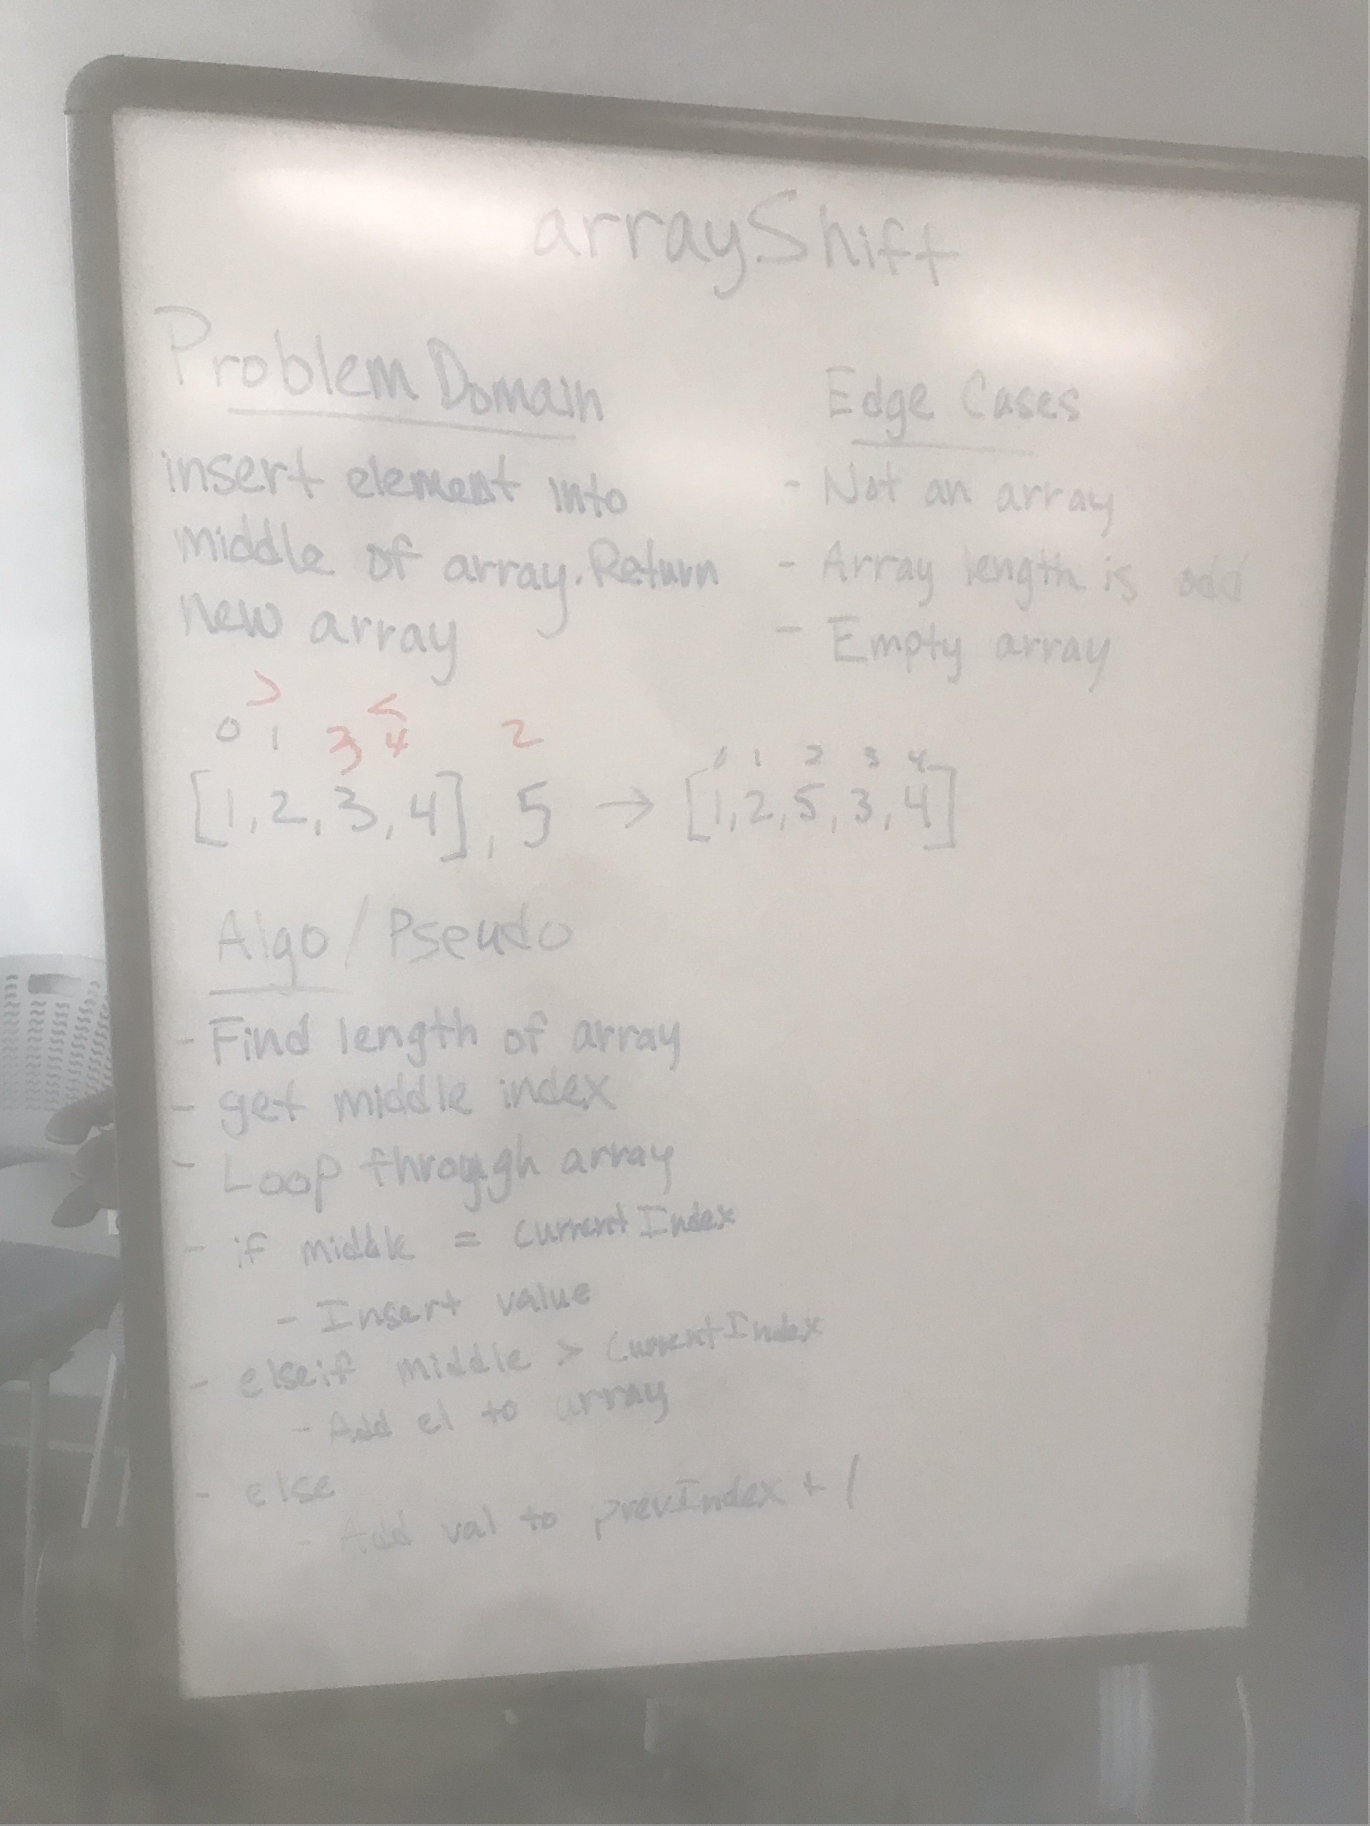 arrayShift
Problem Domain
insert element into
middle of array. Return
new array
Edge Cases
- Not an array
- Array length is odd
- Empty array
> <
0 1 3 4 2
[1, 2, 3, 4], 5 → [1, 2, 5, 3, 4]
0 1 2 3 4
Algo / Pseudo
- Find length of array
- get middle index
- Loop through array
- if middle = currentIndex
- Insert value
- elseif middle > currentIndex
- Add el to array
- else
- Add val to prevIndex + 1